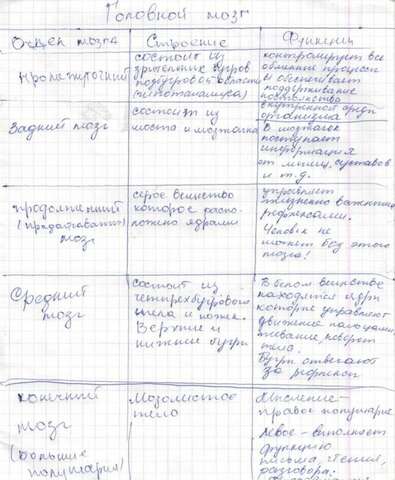 Головной мозг
Отдел мозга
Строение
Функции
Промежуточный
состоит из
зрительных бугров
подбугровой области
(гипоталамуса)
контролирует все
обменные процессы
и обеспечивает
поддерживание
постоянства
внутренней среды
организма
Задний мозг
состоит из
моста и мозжечка
В мозжечок
поступает
информация
от мышц, суставов
и т.д.
продолжений
(продолговатый)
мозг
серое вещество
которое распо-
ложено ядрами
управляет
жизненно важными
рефлексами.
Человек не
может без этого
мозга!
Средний
мозг
состоит из
четверохбугрового
тела и ножек.
Верхние и
нижние бугры
В белом веществе
находятся ядра
которые управляют
движение пальцами,
глотание, поворот
тела.
Бугры отвечают
за рефлексы
конечный
мозг
(большие
полушария)
Мозолистое
тело
Мышление-
правое полушарие
Левое - выполняет
функцию
письма, чтения,
разговора;